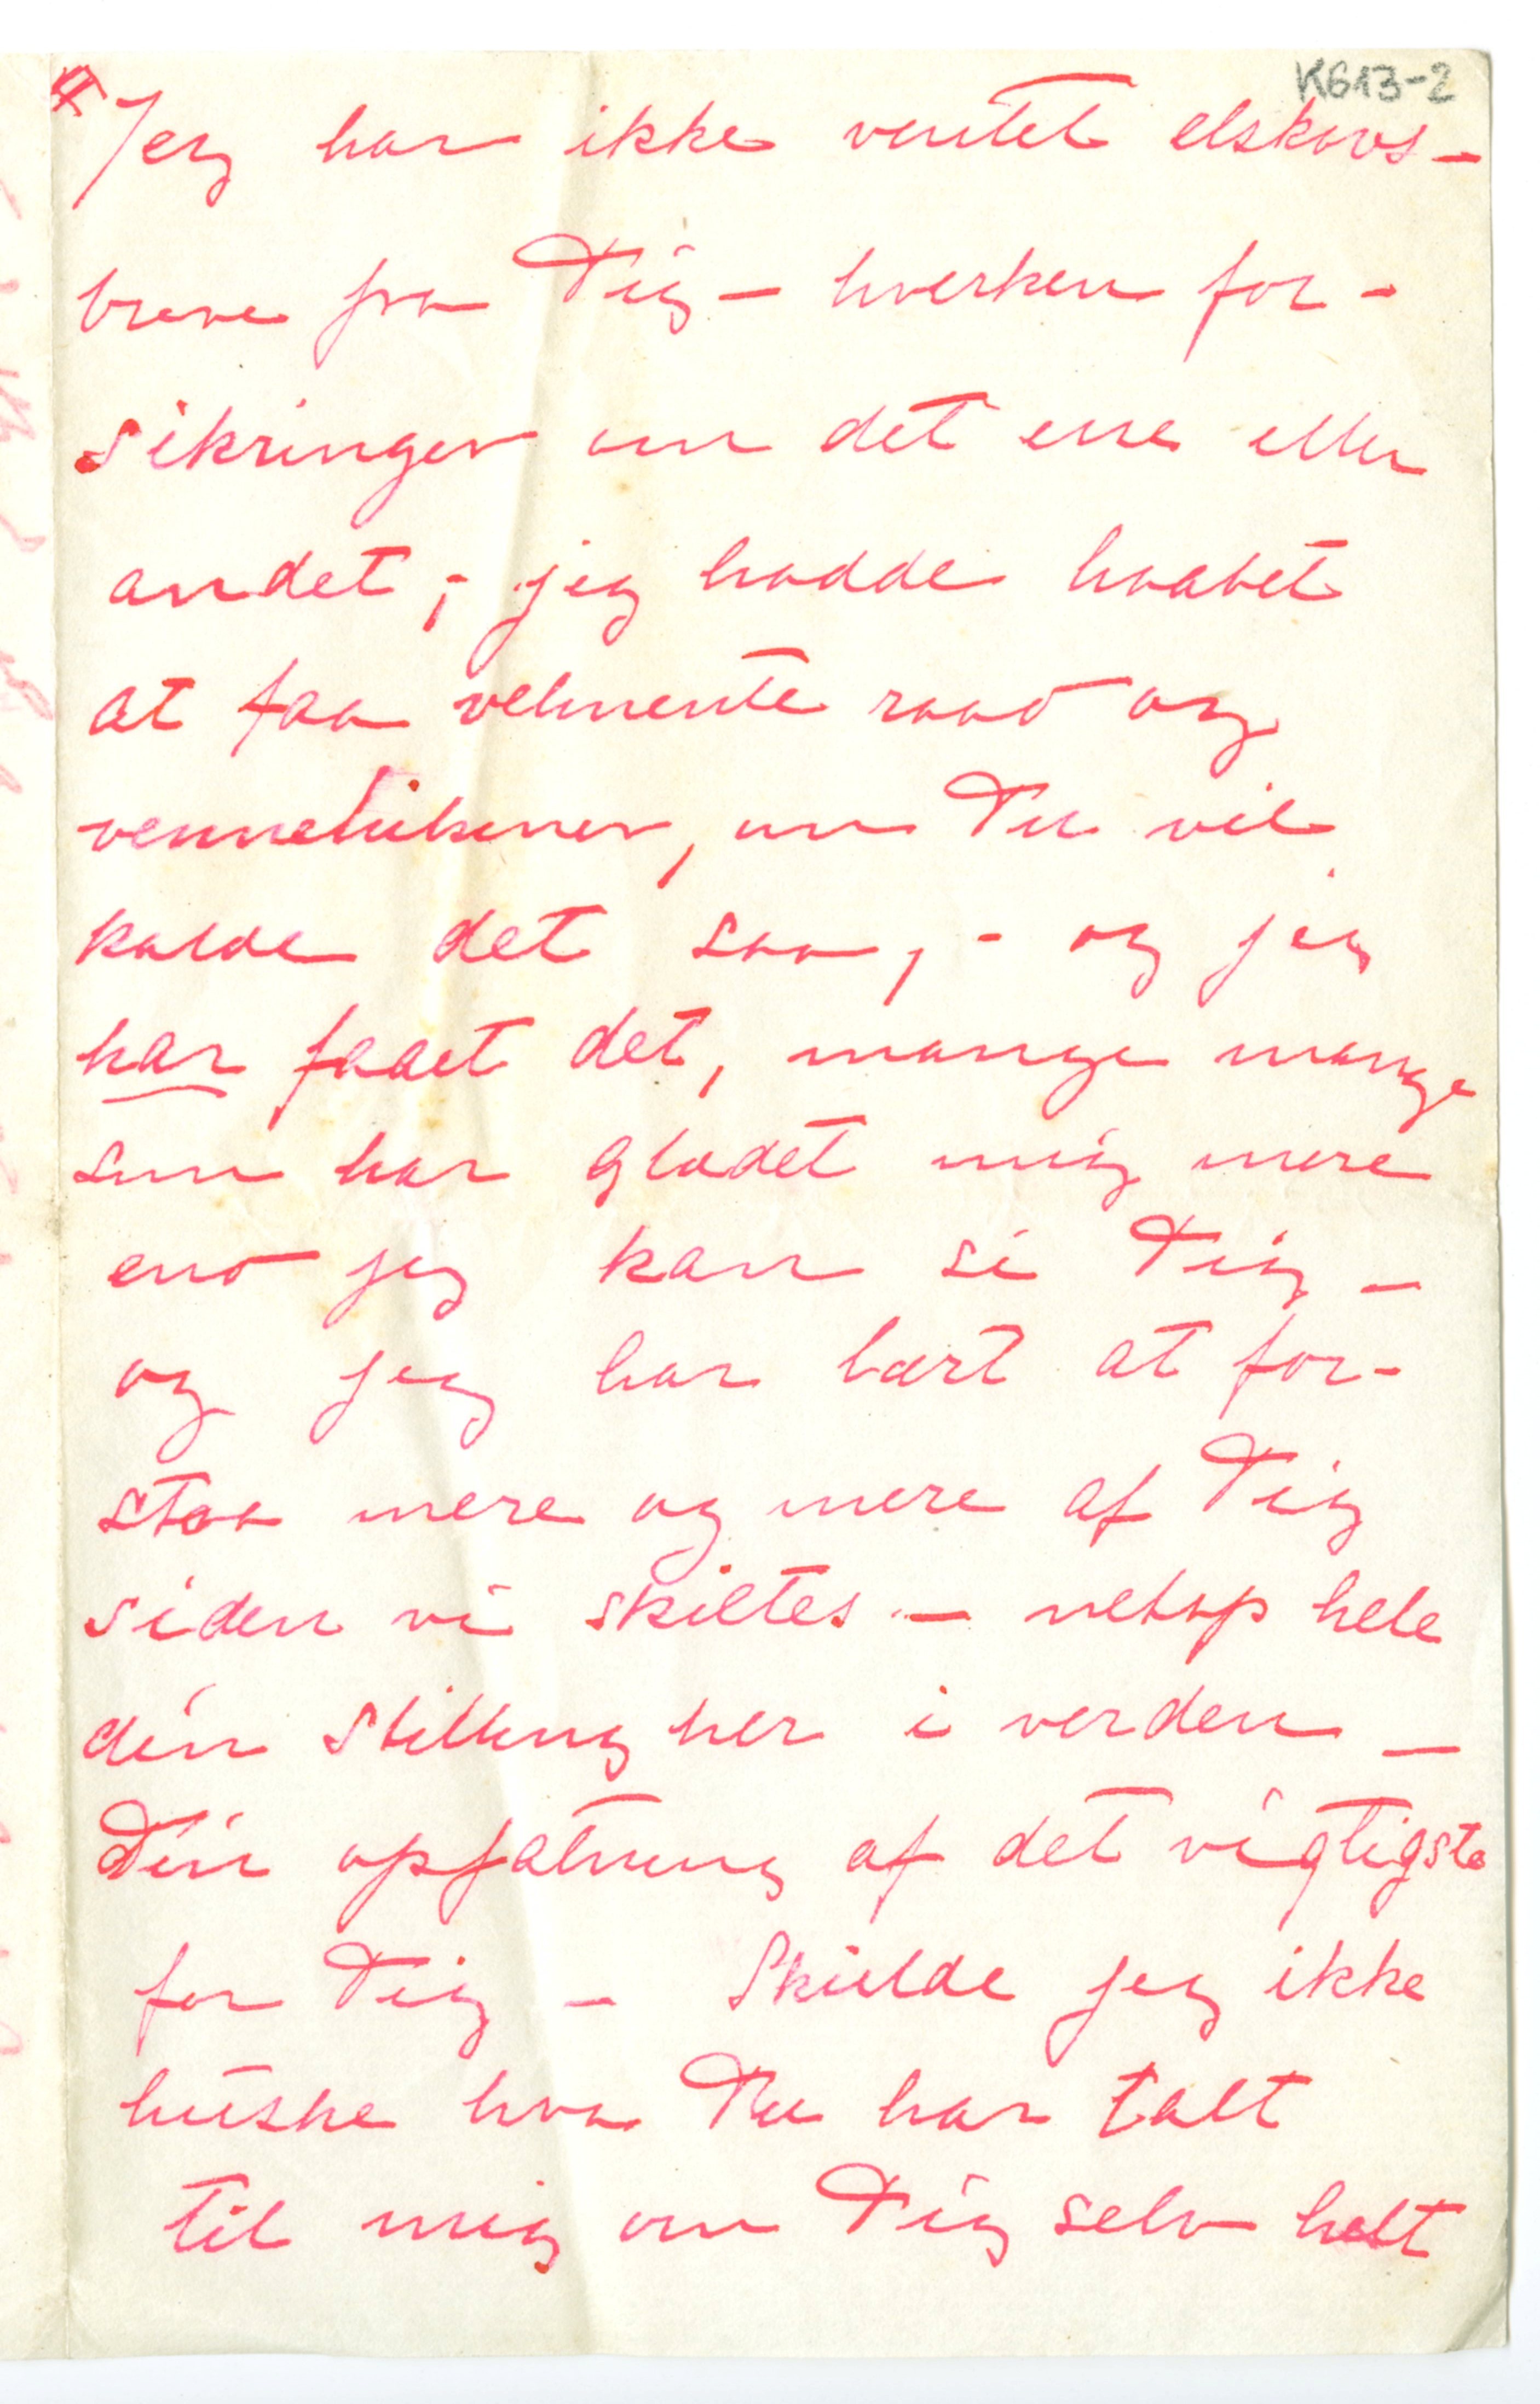 K613-2
4
Jeg har ikke ventet elskovs-
breve fra Dig – hverken for-
sikringer om det ene eller
andet; - jeg hadde haabet
at faa velmente raad og
vennetilsener, om Du vil
kalde det saa, - og jeg
har faaet det, mange mange
som har glædet mig mere
end jeg kan si Dig –
og jeg har lært at for-
staa mere og mere af Dig
siden vi skiltes. – netop hele
din stilling her i verden –
Din opfatning af det vigtigste
for Dig – Skulde jeg ikke
huske hva Du har talt
til mig om Dig selv helt